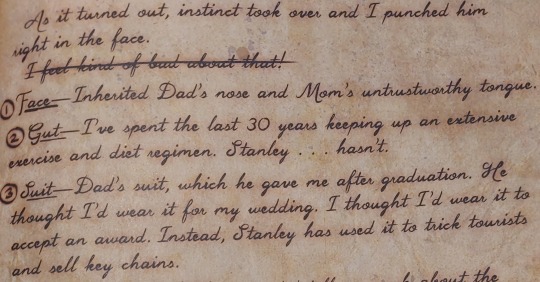 As it turned out, instinct took over and I punched him
right in the face.
I feel kind of bad about that!
① Face—Inherited Dad's nose and Mom's untrustworthy tongue.
② Gut—I've spent the last 30 years keeping up an extensive
exercise and diet regimen. Stanley . . . hasn't.
③ Suit—Dad's suit, which he gave me after graduation. He
thought I'd wear it for my wedding. I thought I'd wear it to
accept an award. Instead, Stanley has used it to trick tourists
and sell key chains.
about the